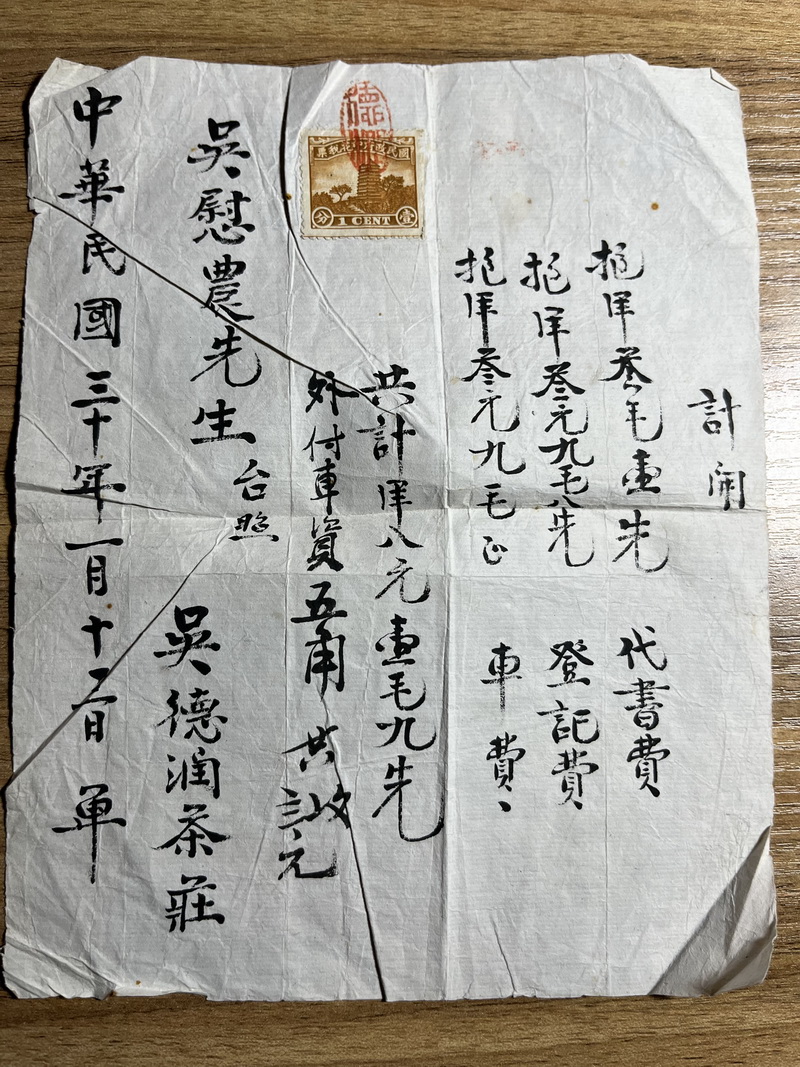 計開
洋叁毛壹先 代書費
洋叁元九毛八先 登記費
洋叁元九毛正 車費
共計洋八元壹毛九先
外付車資五角 共收元
國民政府印花稅票
壹 1 CENT 分
德潤
吳慰農先生 台照
吳德潤茶莊
中華民國三十年一月十二日 單